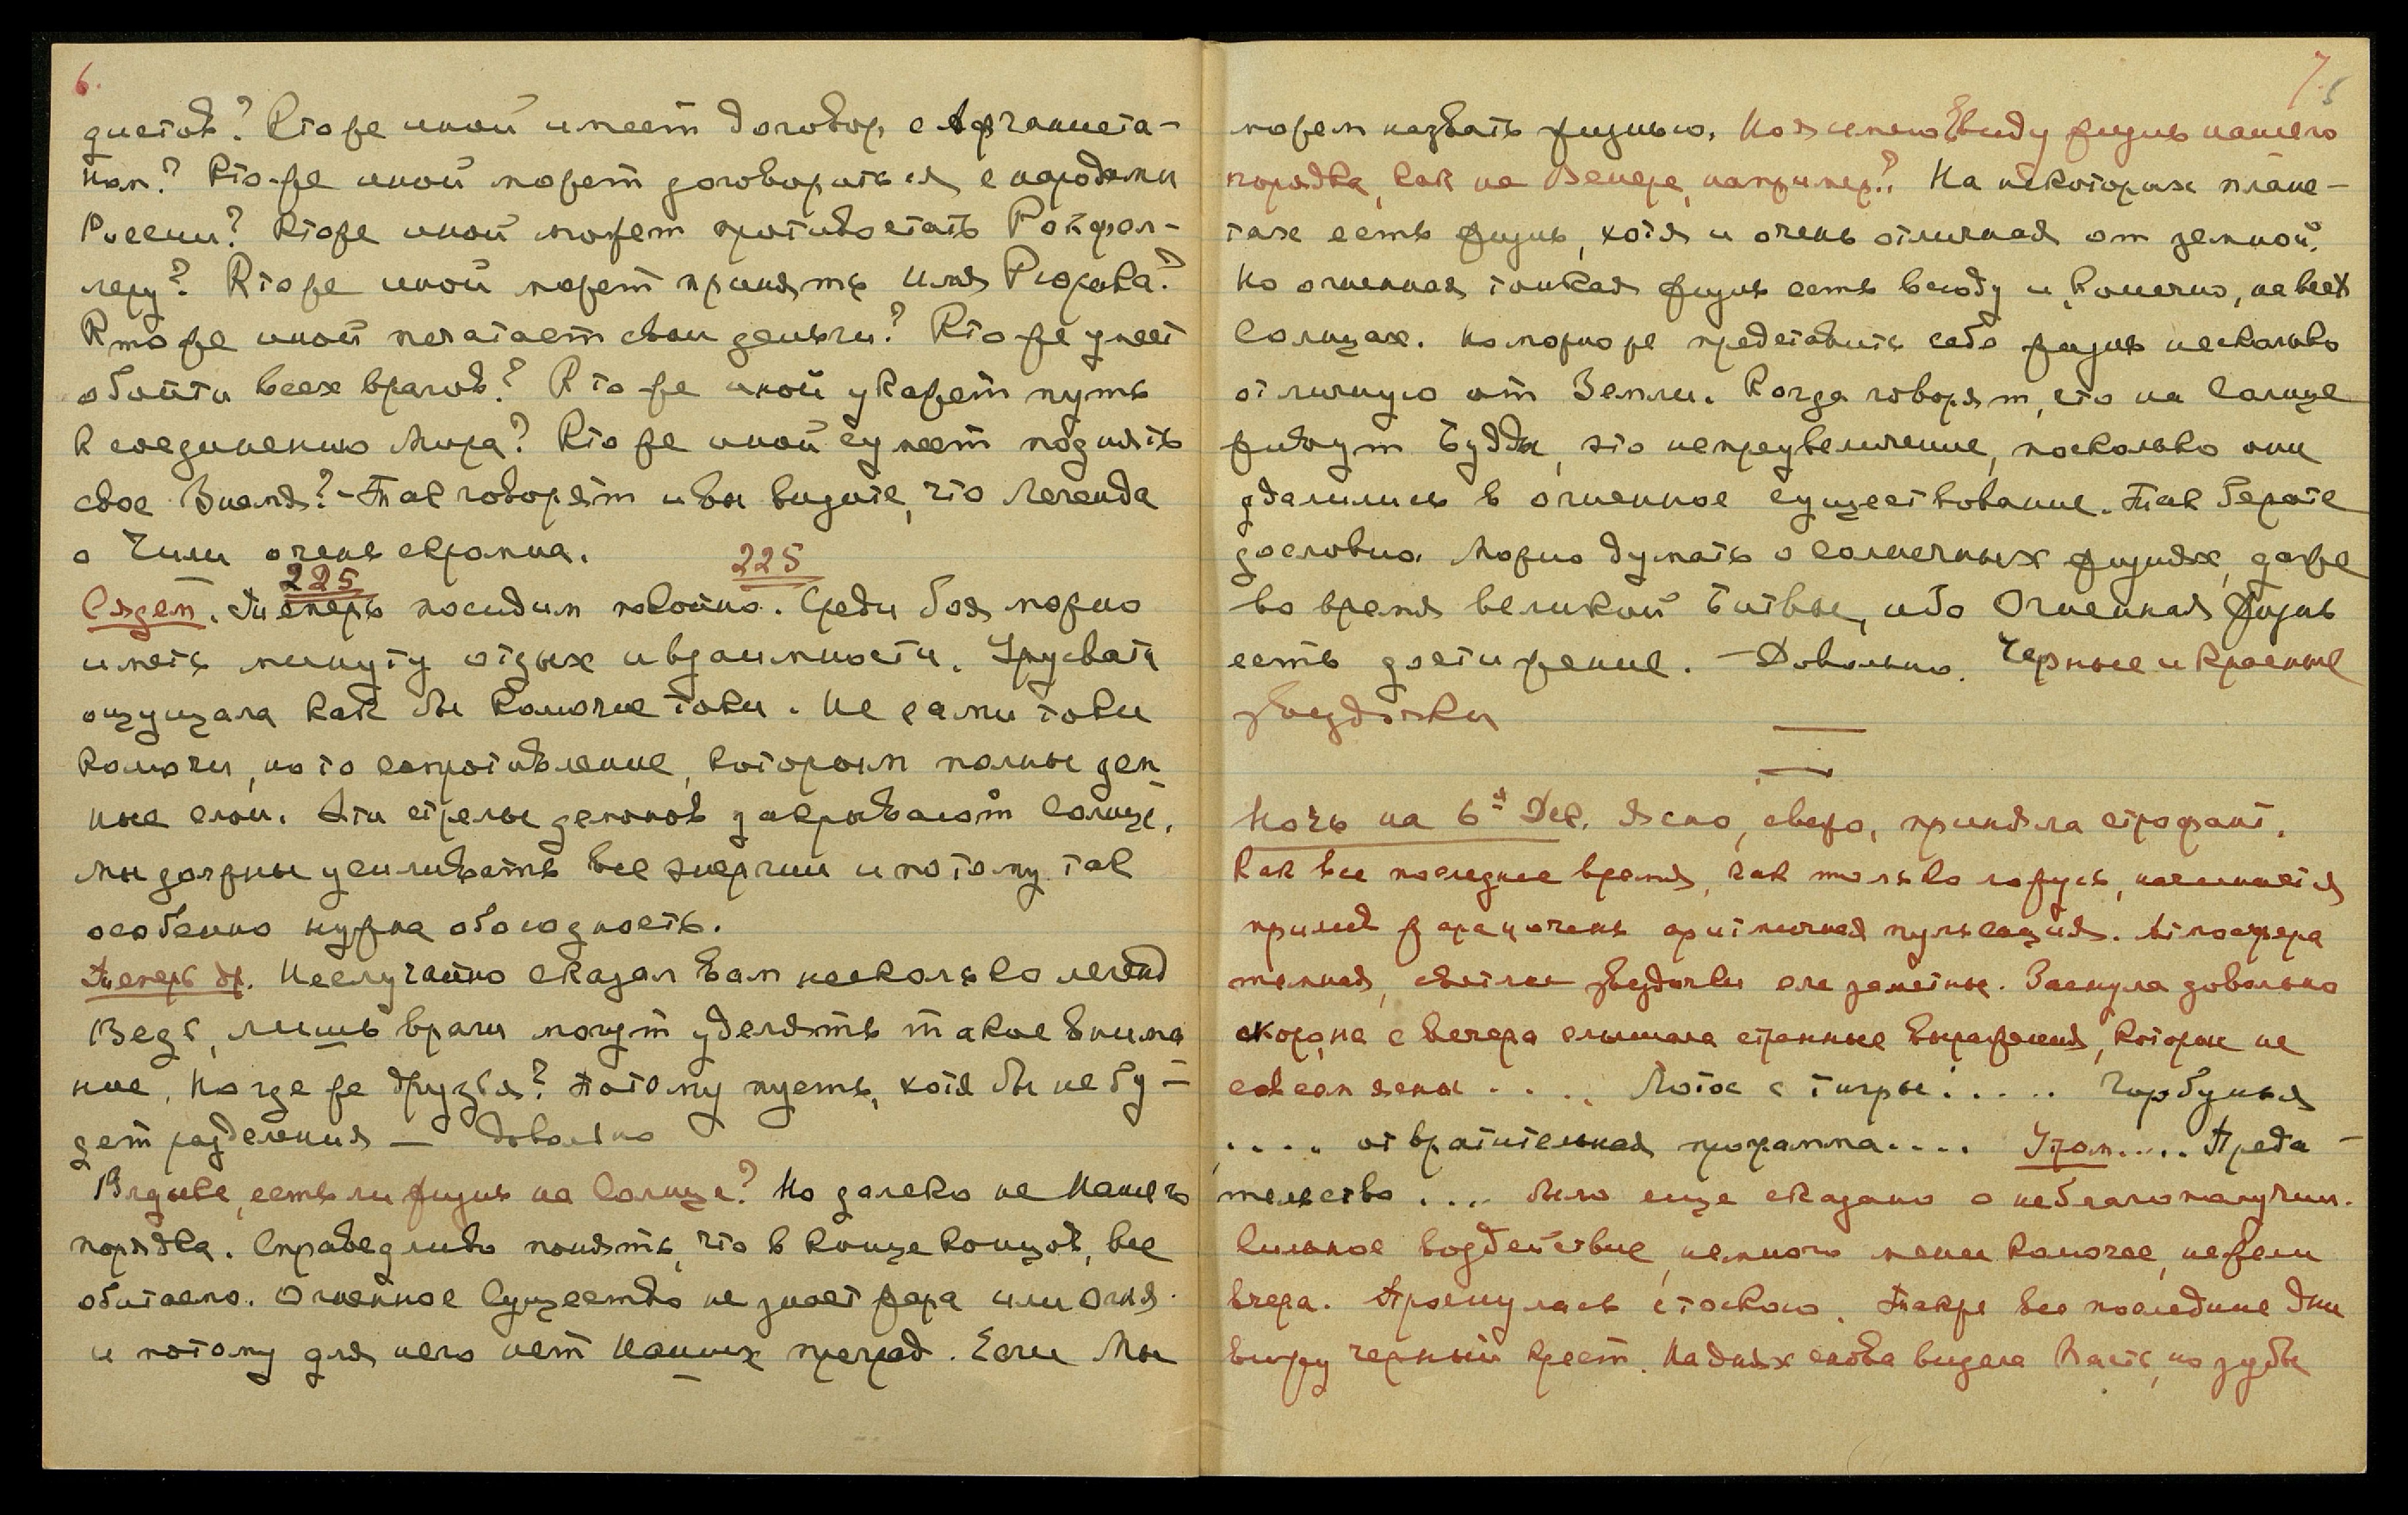 6.
дистов? Кто же иной имеет договор с Афганиста-
ном? Кто же иной может договориться с народами
России? Кто же иной может противостать Рокфел-
леру? Кто же иной может принять Имя Рюрика?
Кто же иной печатает свои деньги? Кто же умеет
обойти всех врагов? Кто же иной укажет путь
к соединению Мира? Кто же иной сумеет поднять
свое Знамя? - Так говорят и вы видите, что легенда
о Чили очень скромна.
225 225
Сядем. Теперь посидим спокойно. Среди боя можно
иметь минуту отдых и взаимности. Урусвати
ощущала как бы колючие токи. Не сами токи
колючи, но то сопротивление, которым полны зем-
ные слои. Эти стрелы демонов закрывают Солнце.
Мы должны усиливать все энергии и потому так
особенно нужна обоюдность.
Теперь др. Неслучайно сказал вам несколько легенд
Ведь, лишь враги могут уделять такое внима-
ние. Но где же друзья? Потому пусть, хотя бы не бу-
дет разделения — Довольно
Владыка, есть ли жизнь на Солнце? Но далеко не Нашего
порядка. Справедливо понять, что в конце концов, все
обитаемо. Огненное Существо не знает жара или Огня
и потому для него нет Наших преград. Если Мы
7.
можем назвать жизнью. Но я имею ввиду жизнь нашего
порядка, как на Венере, например? На некоторых плане-
тах есть жизнь, хотя и очень отличная от земной.
Но огненная тонкая жизнь есть всюду и, конечно, на всех
Солнцах. Но можно же представить себе жизнь несколько
отличную от Земли. Когда говорят, что на Солнце
живут Будды, это не преувеличение, поскольку они
удалились в огненное существование. Так берите
дословно. Можно думать о солнечных жизнях, даже
во время великой битвы, ибо Огненная жизнь
есть достижение. — Довольно. Черные и красные
звездочки
Ночь на 6ое Дек. Ясно, свежо, приняла строфант.
Как все последнее время, как только ложусь, начинается
прилив жара и очень аритмичная пульсация. Атмосфера
темная, светлые звездочки еле заметные. Заснула довольно
скоро, но с вечера слышала странные выражения, которые не
совсем ясны . . . . Лотос с тигры . . . . . Горбунья
. . . . отвратительная программа . . . . Утром . . . . . Преда-
тельство . . . . Было еще сказано о неблагополучии.
Сильное воздействие, немного менее колючее, нежели
вчера. Проснулась с тоскою. Также все последние дни
вижу черный крест. На днях снова видела Пасть, но зубы